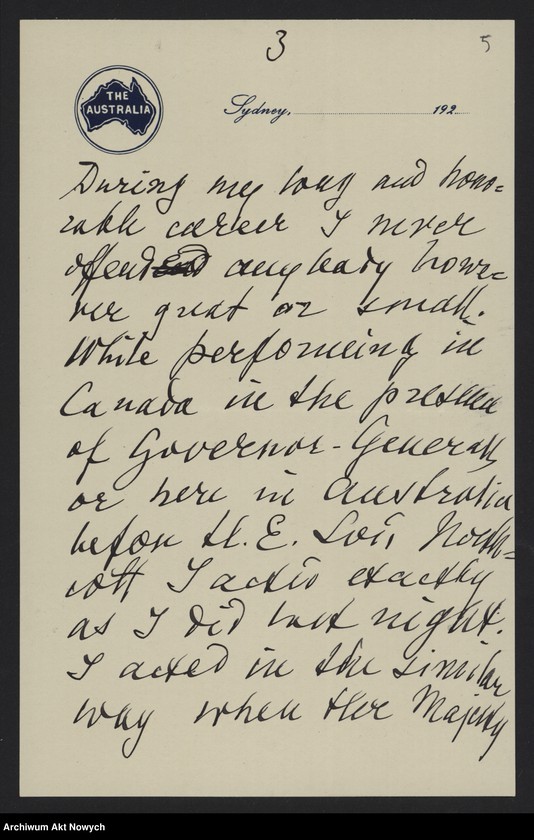 3
5
THE
AUSTRALIA
Sydney, 192
During my long and hono=
rable career I never
offend anybody howe=
ver great or small.
While performing in
Canada in the presence
of Governor-Generals,
or here in Australia
before H. E. Lord North=
cott I acted exactly
as I did last night.
I acted in the similar
way when Her Majesty
Archiwum Akt Nowych